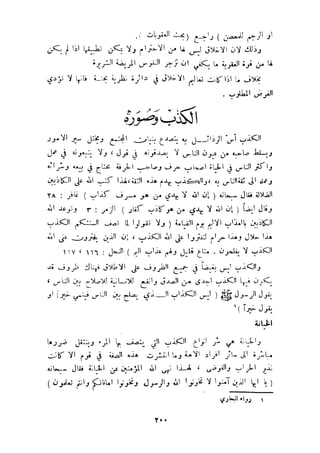 أو الرجم للمحصن ) راجع ( بحث العقوبات ) .
وذلك لأن الأخلاق ليس لها من الاحترام ولا يمكن تطبيقها إذا لم يكن
لها من قوة العقوبة ما يكفى لأن تزجر النفوس المريضة الشريرة
بخلاف ما إذا كانت تعاليم الأخلاق فى دائرة نظرية بحتة فإنها لا تؤدى
الغرض المطلوب .
الكذب وصوره
الكذب أس الرذائل به يتصدع بنيان المجتمع ويختل سير الأمور
ويسقط صاحبه من عيون الناس لا يصدقونه فى قول ، ولا يأمنونه فى عمل
وأكثر الناس احتياجا فى الحياة أصحاب الحرف وصاحب الحرفة يحتاج فى بيعه وشرائه
وعمله إلى ثقة الناس به، والكذب يهدم هذه الثقة، لهذا حمل الله على الكاذبين
الضالة فقال سبحانه ( إن الله لا يهدى من هو مسرف كذاب ) غافر : ٢٨
وقال أيضاً ( إن الله لا يهدى من هو كاذب كفار ) الزمر : ٣ وتوعد الله
الكاذبين بالعذاب الأليم يوم القيامة ( ولا تقولوا لما تصف ألسنتكم الكذب
هذا حلال وهذا حرام لتفتروا على الله الكذب ، إن الذين يفترون على الله
الكذب لا يفلحون . متاع قليل ولهم عذاب أليم ) النحل : ١١٦ ، ١١٧
والكذب ليس بغيضاً فى جميع الظروف على الإطلاق فهناك ظروف قد
يكون فيها الكذب أجدى من الصدق وأنفع للإنسانية كالإصلاح بين الناس ،
يقول الرسول ﷺ ( ليس الكذاب الذى يصلح بين الناس فينمى خيراً أو
يقول خيراً )١
الخيانة
والخيانة هى شر أنواع الكذب التى يتصف بها المرء وينتقل ضررها
مباشرة إلى سائر أفراد الأمة وما انتشرت هذه الصفة فى قوم إلا كانت
نذير الخراب والفوضى ، لهذا نهى الله المؤمنين عن الخيانة فقال سبحانه
( يا أيها الذين آمنوا لا تخونوا الله والرسول وتخونوا أماناتكم وأنتم تعلمون )
١ رواه البخارى
٢٠٠